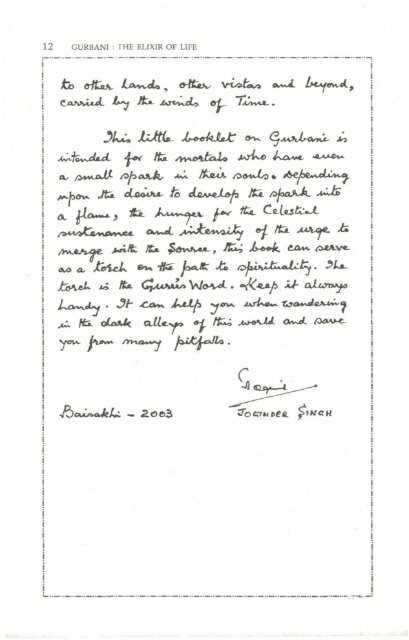 12 GURBANI : THE ELIXIR OF LIFE
to other lands, other vistas and beyond,
carried by the winds of Time.
This little booklet on Gurbani is
intended for the mortals who have even
a small spark in their souls. Depending
upon the desire to develop the spark into
a flame, the hunger for the Celestial
sustenance and intensity of the urge to
merge with the Source, this book can serve
as a torch on the path to spirituality. The
torch is the Guru's Word. Keep it always
handy. It can help you when wandering
in the dark alleys of this world and save
you from many pitfalls.
Baisakhi - 2003 JOGINDER SINGH